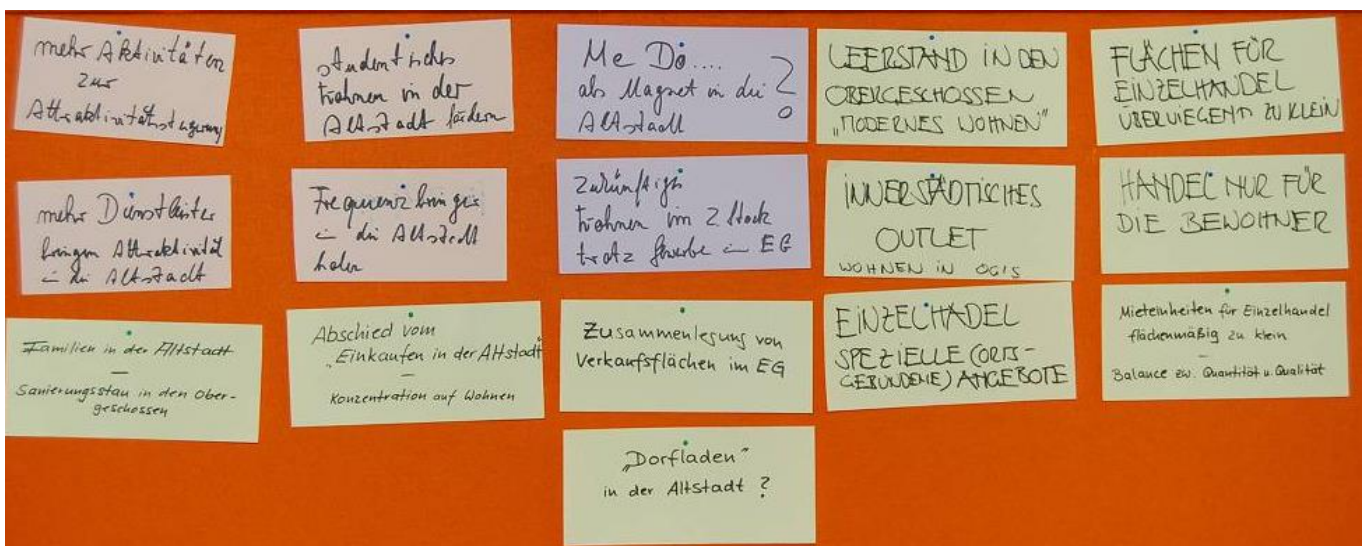 mehr Aktivitäten
zur
Attraktivitätssteigerung
studentisches
Wohnen in der
Altstadt fördern
Me Do.... ?
als Magnet in die
Altstadt
LEERSTAND IN DEN
OBERGESCHOSSEN
„MODERNES WOHNEN"
FLÄCHEN FÜR
EINZELHANDEL
ÜBERWIEGEND ZU KLEIN
mehr Dienstleister
bringen Attraktivität
in die Altstadt
Frequenzbringer
in die Altstadt
holen
Zukünftig
Wohnen im 2 Stock
trotz Gewerbe im EG
INNERSTÄDTISCHES
OUTLET
WOHNEN IN OGIS
HANDEL NUR FÜR
DIE BEWOHNER
Familien in der Altstadt
—
Sanierungsstau in den Ober-
geschossen
Abschied vom
„Einkaufen in der Altstadt"
—
Konzentration auf Wohnen
Zusammenlegung von
Verkaufsflächen im EG
EINZELHADEL
SPEZIELLE (ORTS-
GEBUNDENE) ANGEBOTE
Mieteinheiten für Einzelhandel
flächenmäßig zu klein
—
Balance zw. Quantität u. Qualität
„Dorfladen"
in der Altstadt ?